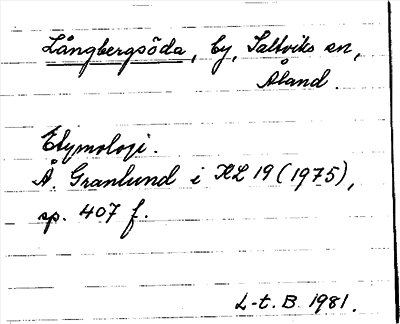 Långbergsöda, by, Saltviks sn,
Åland.
Etymologi.
Å. Granlund i KL 19 (1975),
sp. 407 f.
L-t. B. 1981.